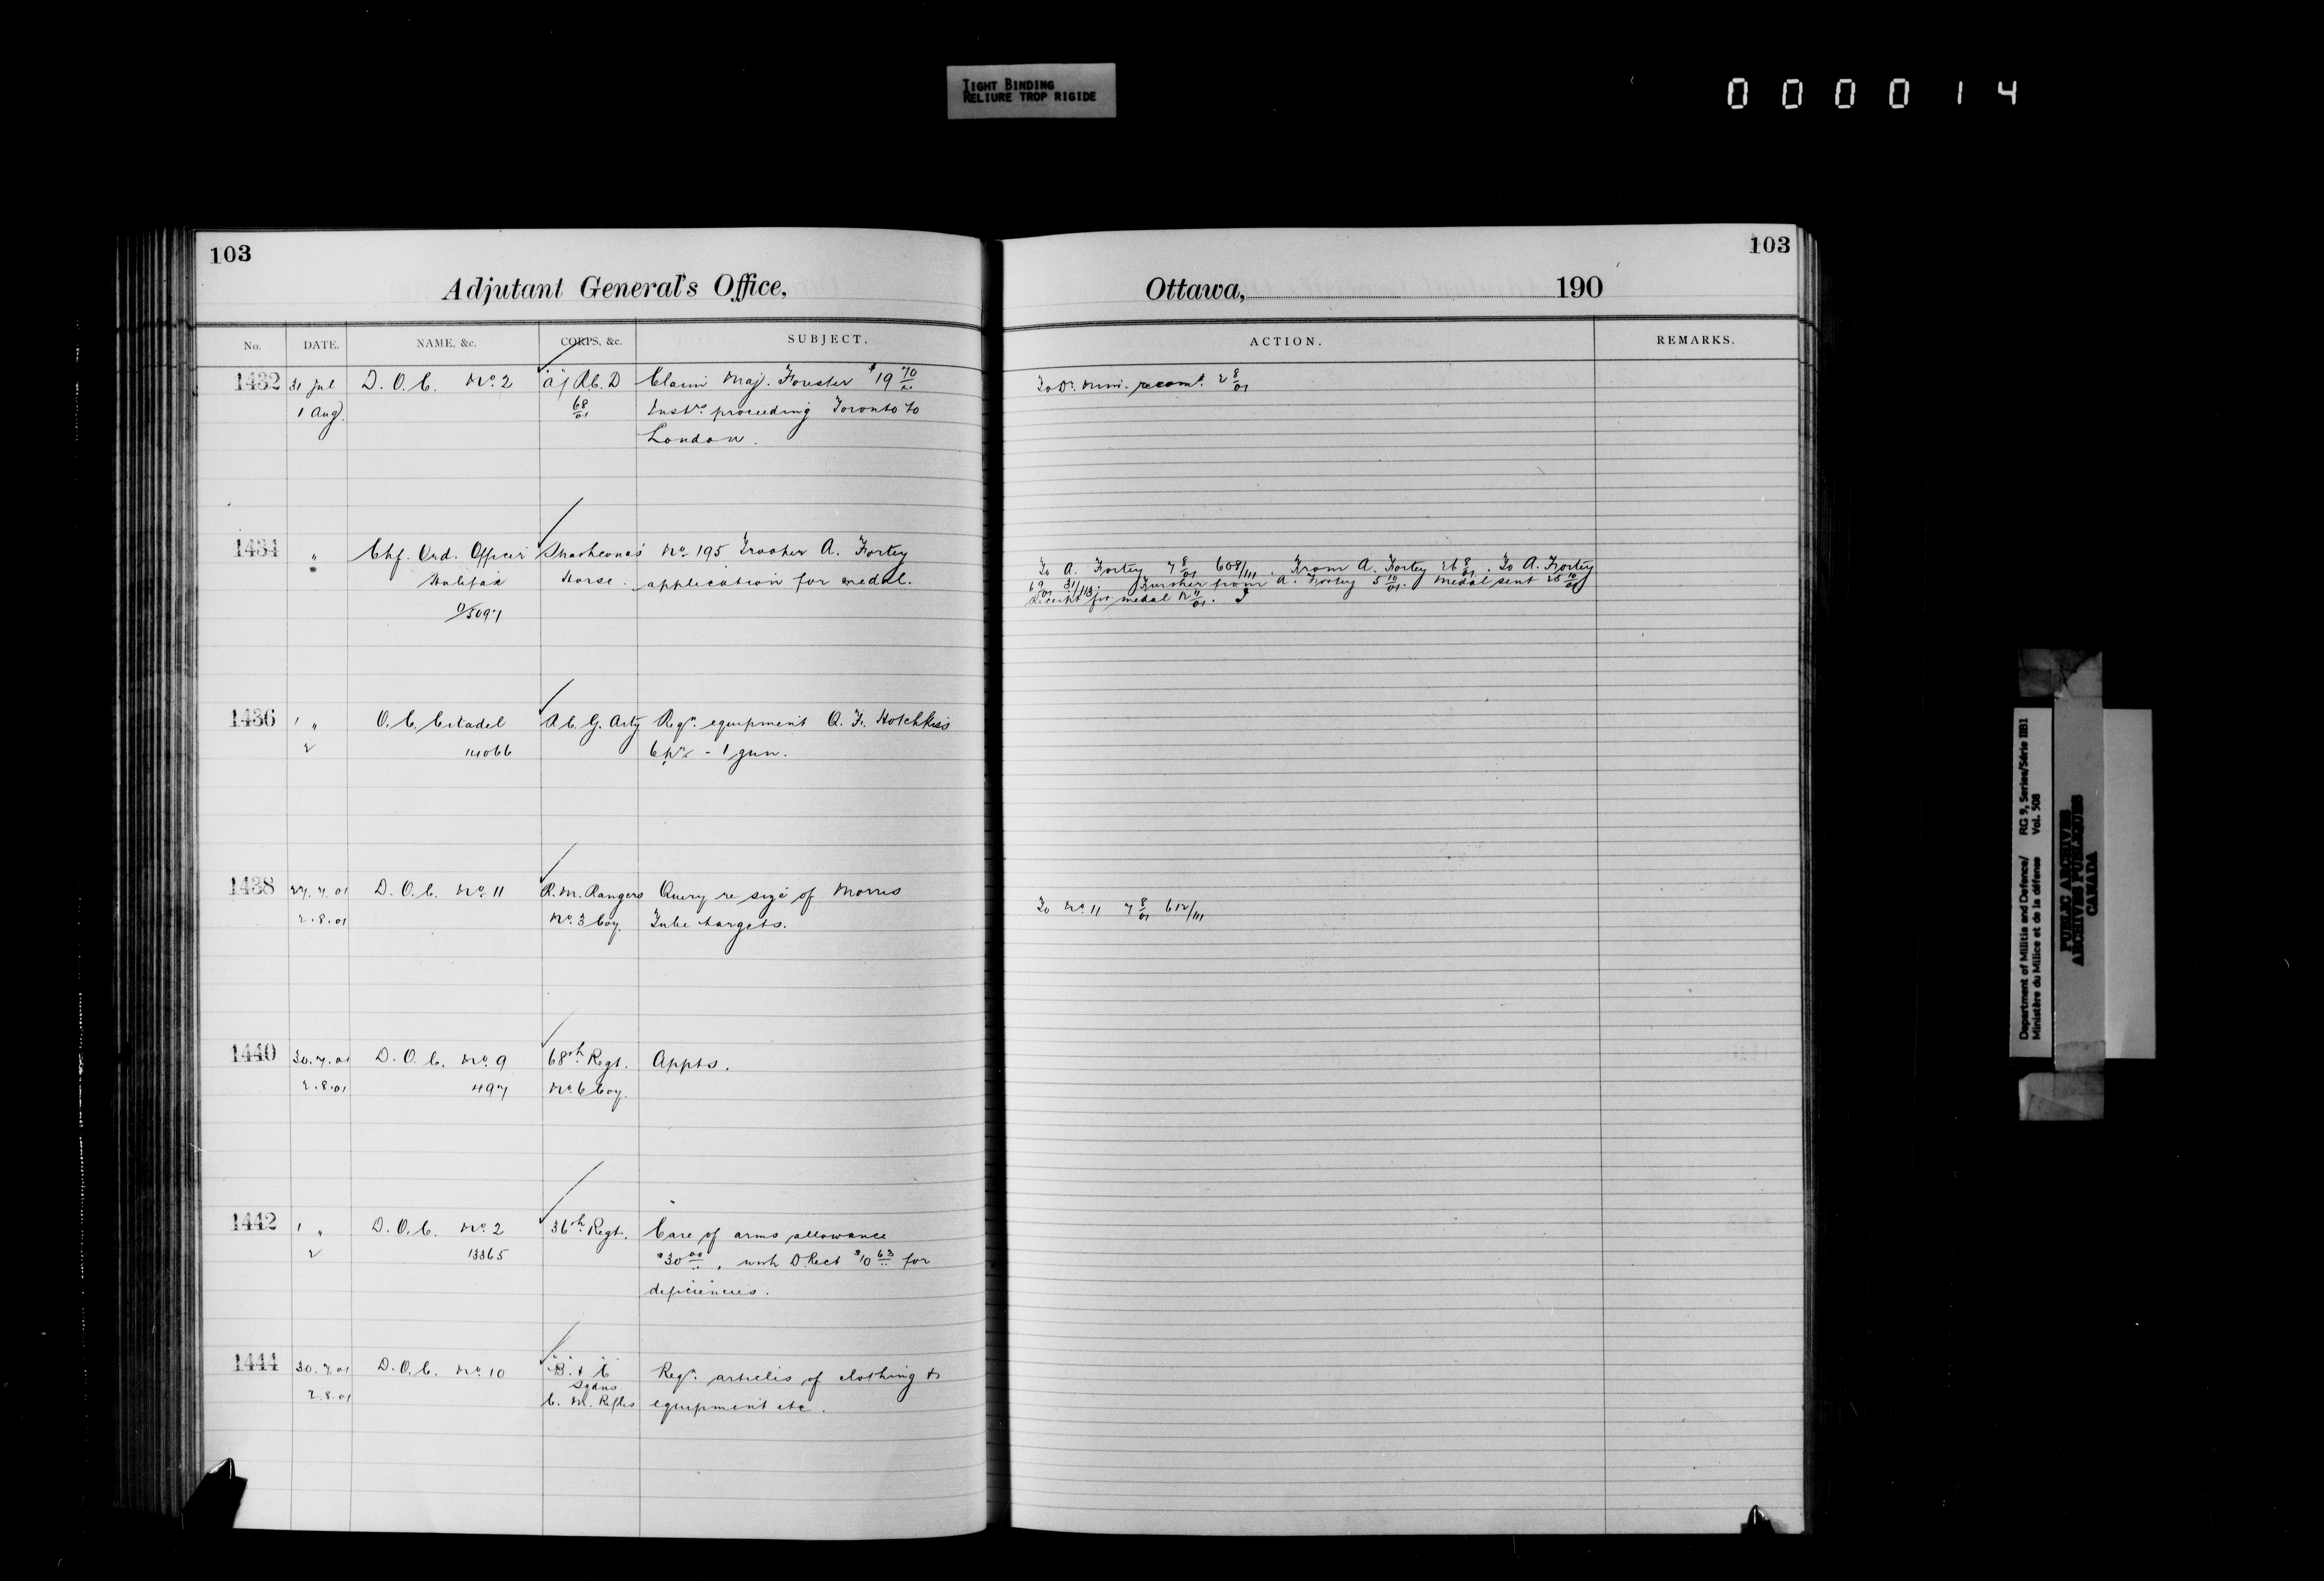 TIGHT BINDING
RELIURE TROP RIGIDE
000014
103
Adjutant General's Office,
No. DATE. NAME, &c. CORPS, &c. SUBJECT.
1432 31 Jul D.O.C. No. 2 "A" R.C.D Claim Maj. Forester $19 70/..
1 Aug. 68/01 proceeding Toronto to
London.
1434 " Chf. Ord. Officer Strathcona's No. 195 Trooper A. Fortey
Halifax Horse. application for medal.
0/5097
1436 1 " O.C. Citadel R.C.G. Arty Reqn. equipment Q.F. Hotchkiss
2 14066 6 pr. - 1 gun.
1438 27.7.01 D.O.C. No. 11 R.M. Rangers Query re size of Morris
2.8.01 No. 3 Coy. Tube targets.
1440 30.7.01 D.O.C. No. 9 68th Regt. Appts.
2.8.01 497 No. 6 Coy.
1442 1 " D.O.C. No. 2 36th Regt. Care of arms allowance
2 13365 $30 00/.., with D. Rect $10 63/.. for
deficiencies.
1444 30.7.01 D.O.C. No. 10 "B" & "C" Reqn. articles of clothing &
2.8.01 Sqdns
C. M. Rifles equipment etc.
103
Ottawa, 190
ACTION. REMARKS.
To D. Min. recomd. 2 8/01
To A. Fortey 7 8/01 608/111. From A. Fortey 26 8/01. To A. Fortey
6 9/01 31/113. Further from A. Fortey 5 10/01. Medal sent 26 10/01
Receipt for medal 12 11/01.
To No. 11 7 8/01 612/111
Department of Militia and Defence/ RG 9, Series/Série IIB1
Ministère du Milice et de la défense Vol. 508
PUBLIC ARCHIVES
ARCHIVES PUBLIQUES
CANADA